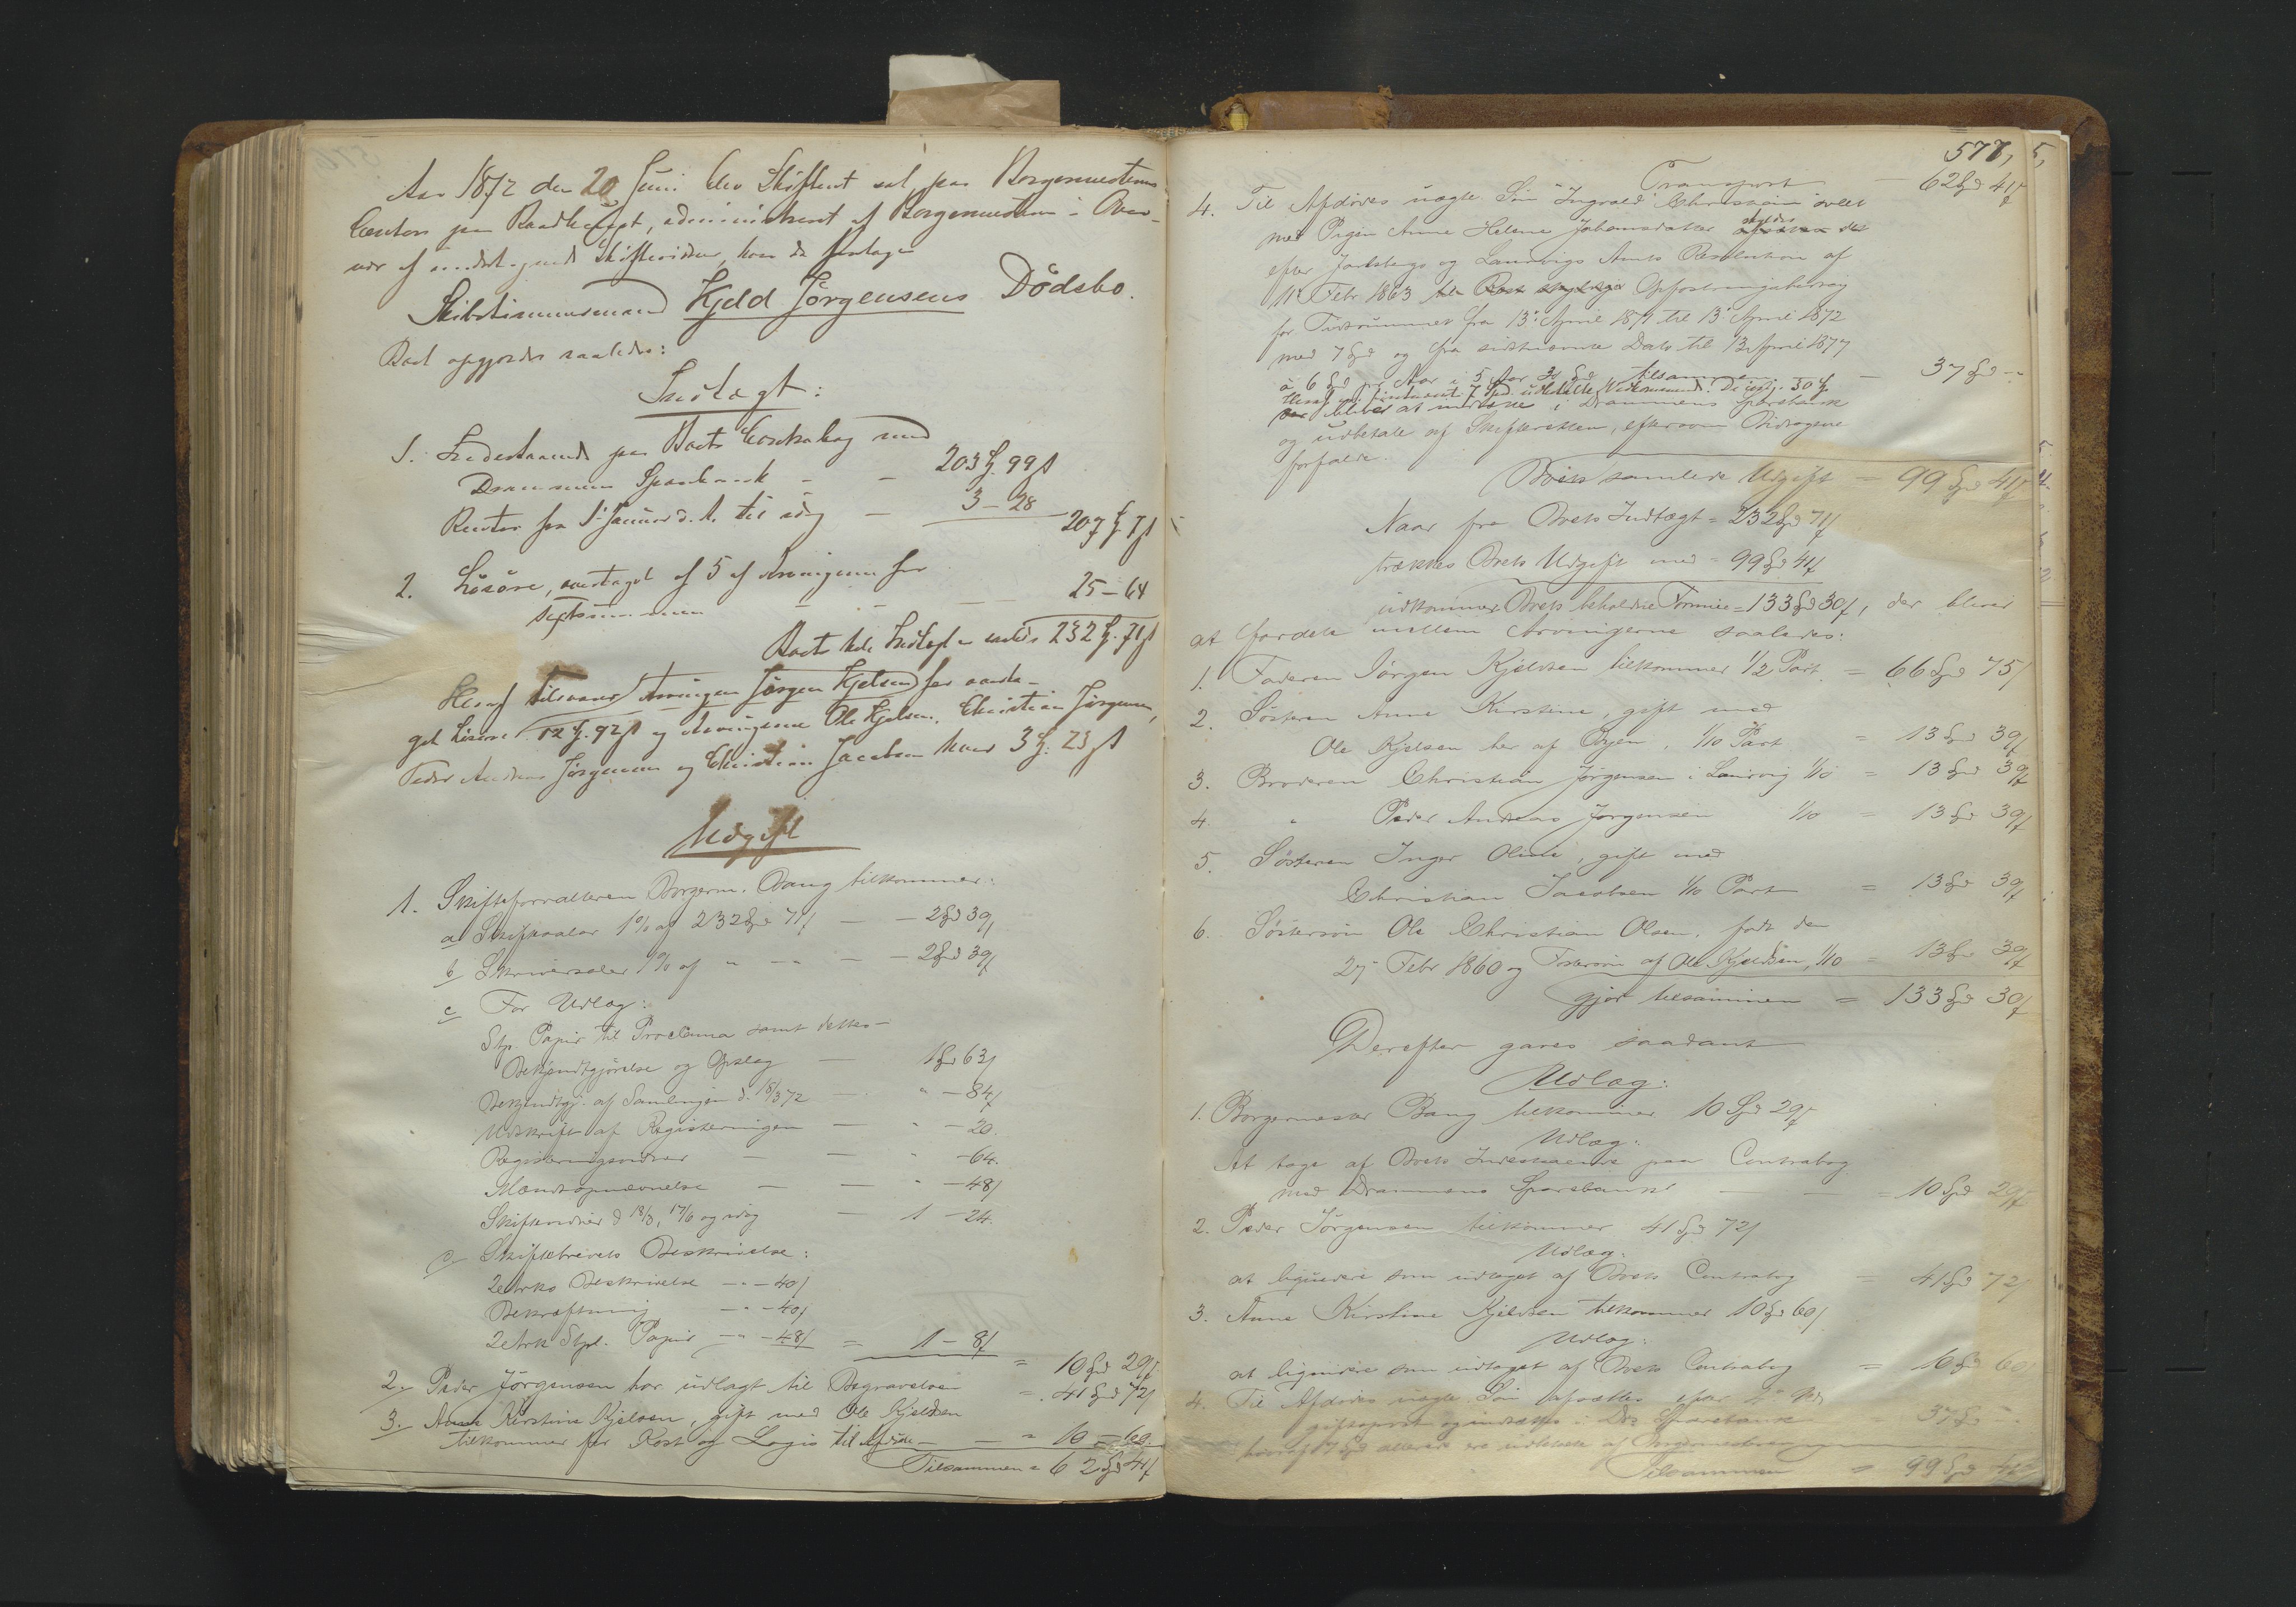 Aar 1872 den 20 Juni blev Skifteret sat paa Borgermesterens
Contor paa Raadhuset, administreret af Borgermesteren i Over-
vær af undertegnede Skiftevidner, hvor da foretoges
Skibstømmermand Kjeld Jørgensens Dødsbo.
Boet opgjordes saaledes:
Indtægt:
1. Indestaaende paa Boets Contrabog med
Drammens Sparebank - - 203 Spd 99 s
Renter fra 1 Januar d. A. til idag - 3 - 28
207 Spd 7 s
2. Løsøre, overtaget af 5 af Arvingerne for
25 - 64
Boets hele Indtægt er saaledes 232 Spd. 71 s
Heraf tilsvarer Arvingen Jørgen Kjelsen for overta-
get Løsøre 12 Spd. 92 s og Arvingerne Ole Kjelsen, Christian Jørgensen,
Peder Andreas Jørgensen og Christian Jacobsen hver 3 Spd. 23 s
Udgift
1. Skifteforvalteren Borgerm. Bang tilkommer:
a Skiftesalær 1% af 232 Spd 71 s - - 2 Spd 39 s
b Skriversalær 1% af " - " - - 2 Spd 39 s
c For Udlæg:
Stp. Papir til Proclama samt dettes
Bekjendtgjørelse og Opslag - 1 Spd 63 s
Bekjendtgj. af Samlingen d. 18/3 72 - " - 84 s
Udskrift af Registeringen - " - 20.
Registeringsvidner - - " - 64.
Mændsopnævnelse - - " - 48 s
Skiftevidner d 18/3, 17/6 og idag - 1 - 24.
d Skiftebrevets Beskrivelse:
2 Arks Beskrivelse - " - 40 s
Bekræftning - " - 40 s
2 Ark Stpl. Papir - " - 48 s = 1 - 8 s
= 10 Spd 29 s
2. Peder Jørgensen har udlagt til Begravelsen = 41 Spd 72 s
3. Anne Kirstine Kjelsen, gift med Ole Kjeldsen
tilkommer for Kost og Logis til Afdøde - - = 10 - 60.
Tilsammen = 62 Spd 41 s
577,
Transport - 62 Spd 41 s
4. Til Afdødes uægte Søn Ingvald Christian avlet
med Pigen Anne Helene Johannesdatter afsættes det
efter Jarlsbergs og Laurvigs Amts Resolution af
11 Febr 1863 Opfostringsbidrag
for Tidsrummet fra 13 April 1871 til 13 April 1872
med 7 Spd og fra sidstnævnte Dato til 13 April 1877
à 6 Spd pr Aar i 5 Aar 30 Spd tilsammen - 37 Spd - "
7 Spd. udbetalte Vedkommende. De øvrige 30 Spd
bliver at indsætte i Drammens Sparebank
og udbetale af Skifteretten, eftersom Bidragene
forfalde.
Boets samlede Udgift = 99 Spd 41 s
Naar fra Boets Indtægt = 232 Spd 71 s
trækkes Boets Udgift med = 99 Spd 41 s
udkommer Boets beholdne Formue = 133 Spd 30 s, der bliver
at fordele mellem Arvingerne saaledes:
1. Faderen Jørgen Kjeldsen tilkommer 1/2 Part = 66 Spd 75 s
2. Søsteren Anne Kirstine, gift med
Ole Kjelsen her af Byen, 1/10 Part = 13 Spd 39 s
3. Broderen Christian Jørgensen i Laurvig 1/10 = 13 Spd 39 s
4. " Peder Andreas Jørgensen 1/10 = 13 Spd 39 s
5. Søsteren Inger Oline, gift med
Christian Jacobsen 1/10 Part = 13 Spd 39 s
6. Søstersøn Ole Christian Olsen, født den
27 Febr 1860 og Fostersøn af Ole Kjeldsen, 1/10 = 13 Spd 39 s
gjør tilsammen = 133 Spd 30 s
Derefter gøres saadant
Udlæg:
1. Borgermester Bang tilkommer 10 Spd 29 s
Udlæg:
At tage af Boets Indestaaende paa Contrabog
med Drammens Sparebank - - = 10 Spd 29 s
2. Peder Jørgensen tilkommer 41 Spd 72 s
Udlæg:
at ligeledes som udtaget af Boets Contrabog = 41 Spd 72 s
3. Anne Kirstine Kjeldsen tilkommer 10 Spd 60 s
Udlæg:
at ligeledes som udtaget af Boets Contrabog = 10 Spd 60 s
4. Til Afdødes uægte Søn afsættes efter
giftspost og indsættes i Drs Sparebank 37 Spd - "
hvoraf 7 Spd allerede ere udbetalte af Borgermesteren
Tilsammen = 99 Spd 41 s